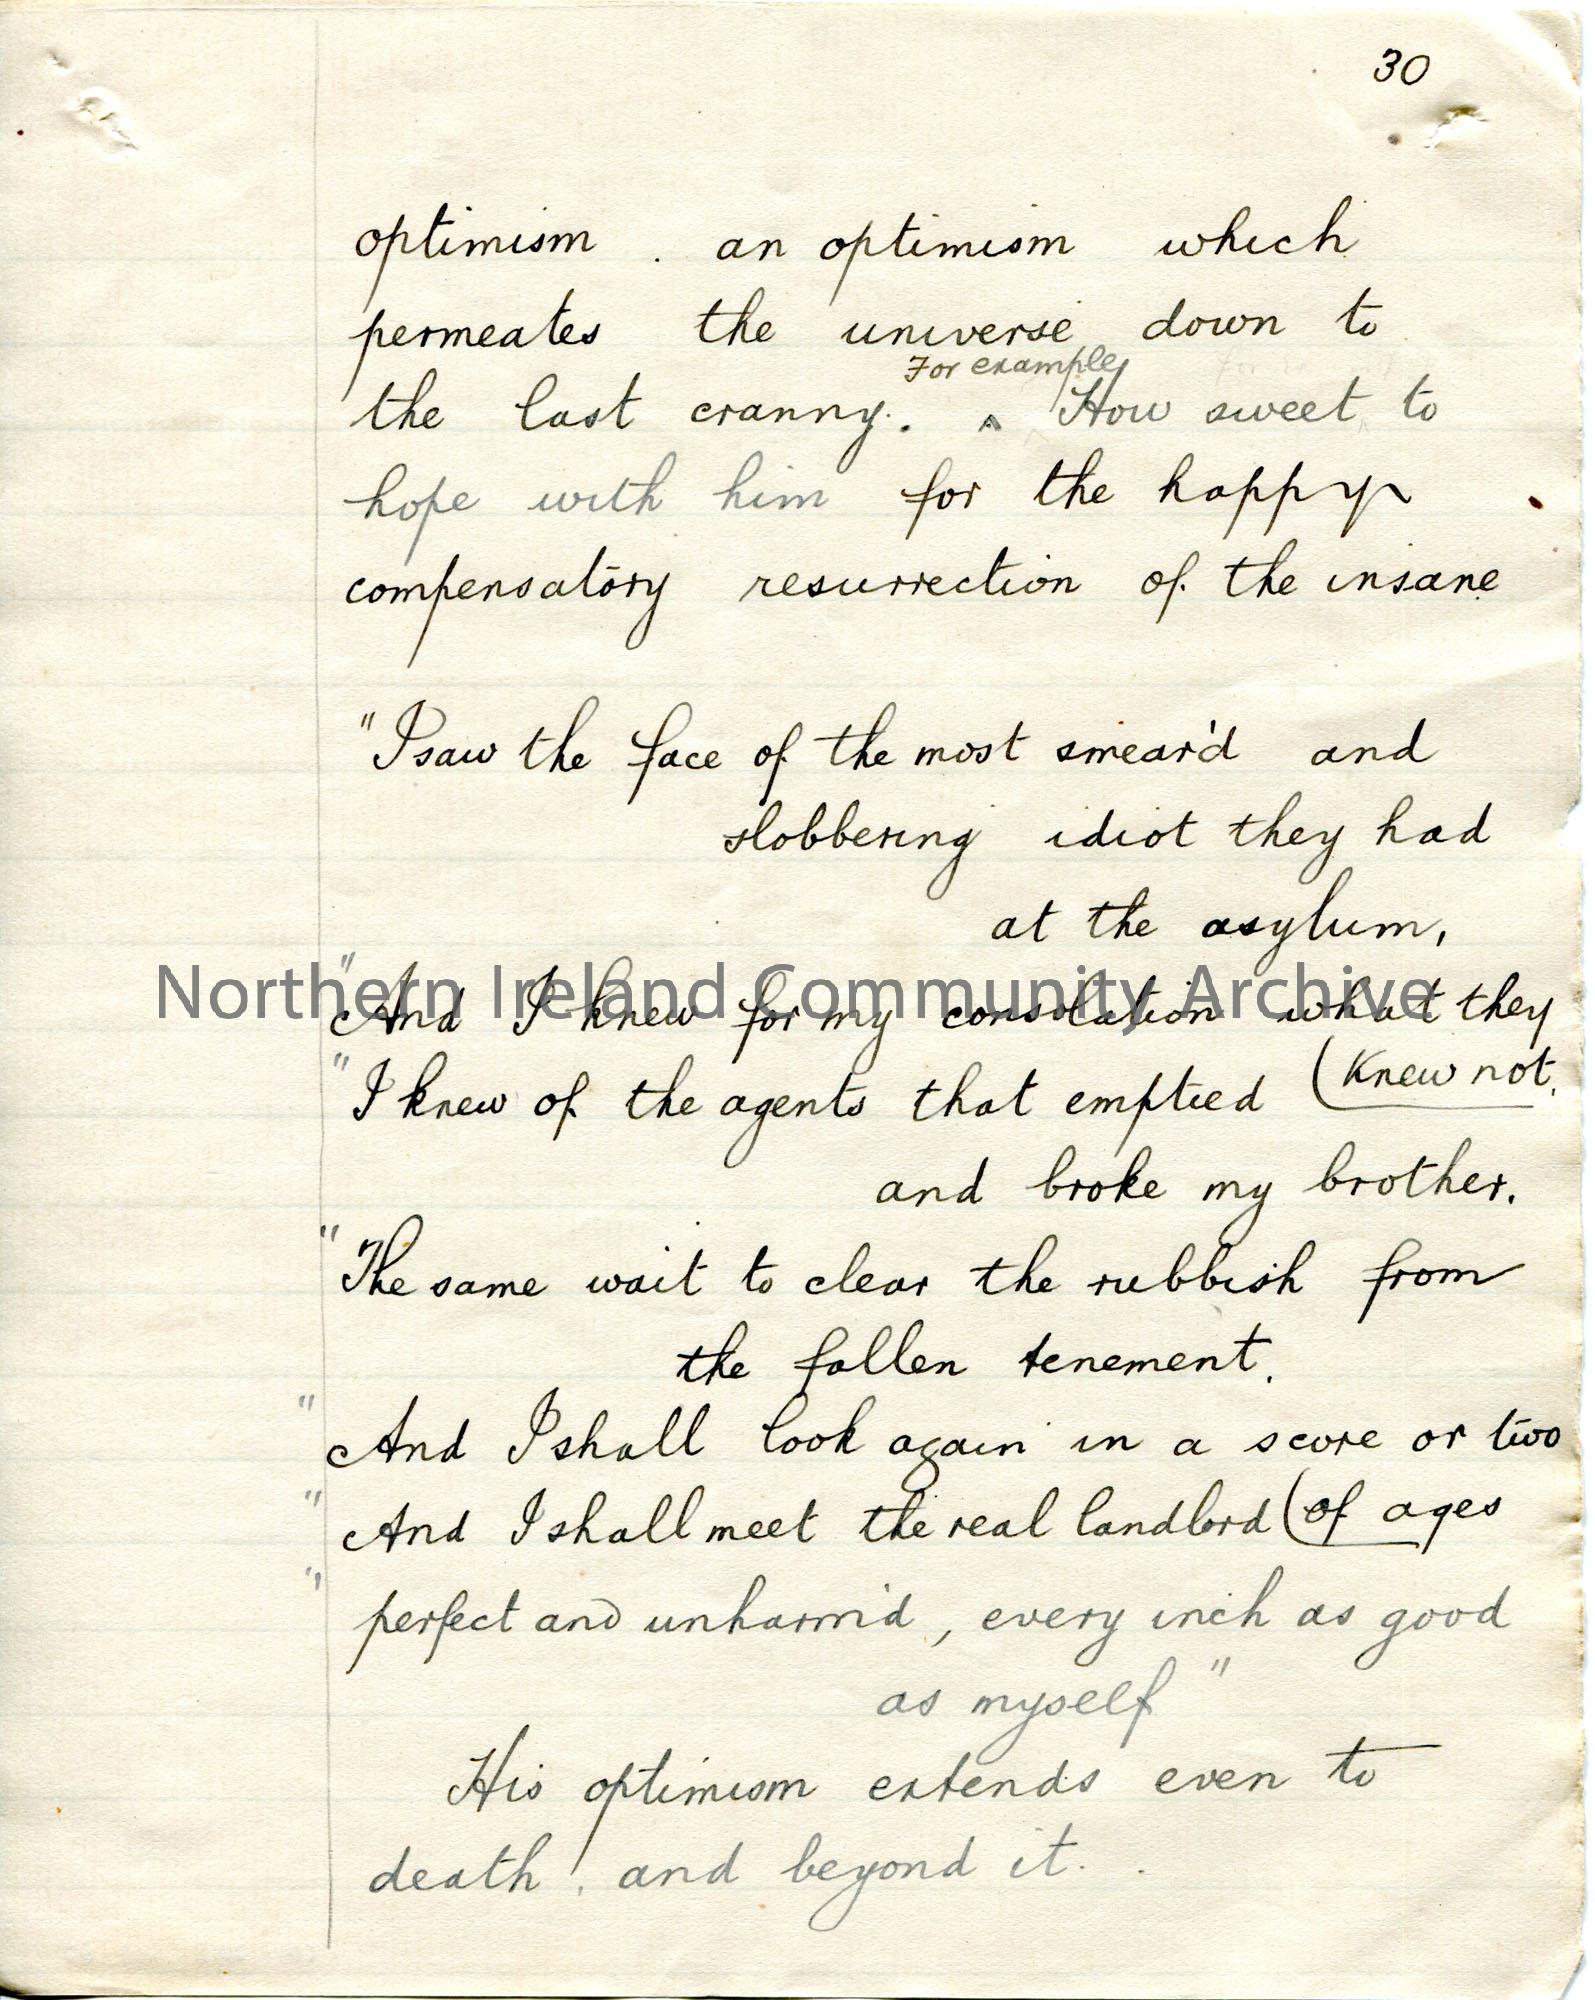 30
optimism . an optimism which
permeates the universe down to
For example,
the last cranny. ^ How sweet to
hope with him for the happy
compensatory resurrection of the insane
"I saw the face of the most smear'd and
slobbering idiot they had
at the asylum,
"And I knew for my consolation what they
(knew not.
"I knew of the agents that emptied
and broke my brother.
"The same wait to clear the rubbish from
the fallen tenement.
"And I shall look again in a score or two
(of ages
"And I shall meet the real landlord
"perfect and unharm'd, every inch as good
as myself"
His optimism extends even to
death, and beyond it.
Northern Ireland Community Archive